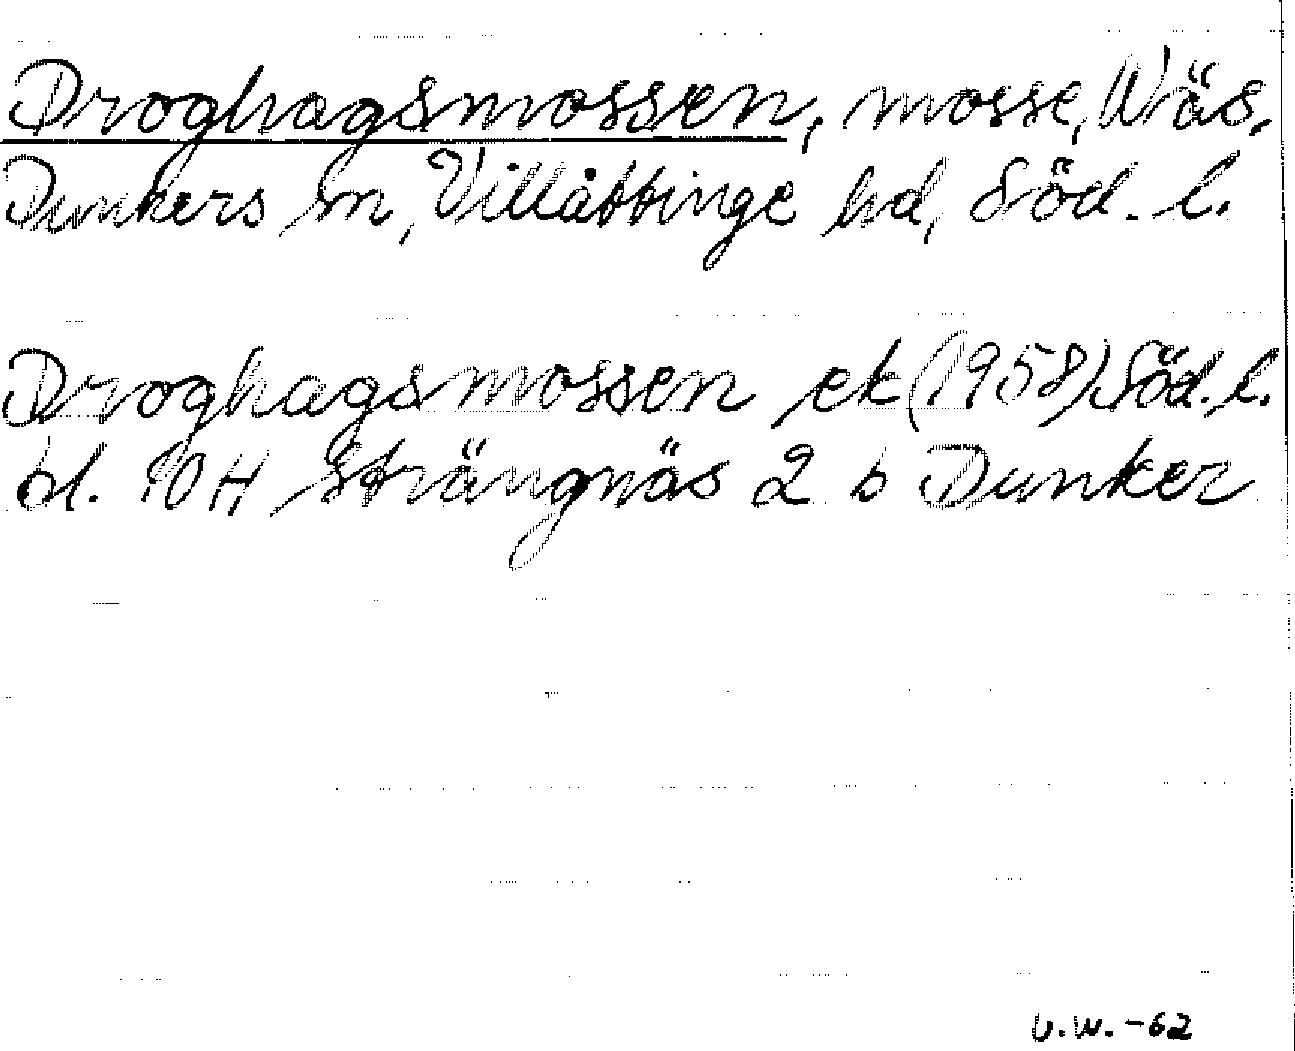 Droghagsmossen, mosse, Wäs,
Dunkers sn, Villåttinge hd, Söd. l.
Droghagsmossen ek (1958) Söd. l.
bl. 10 H Strängnäs 2 b Dunker
U.W. -62